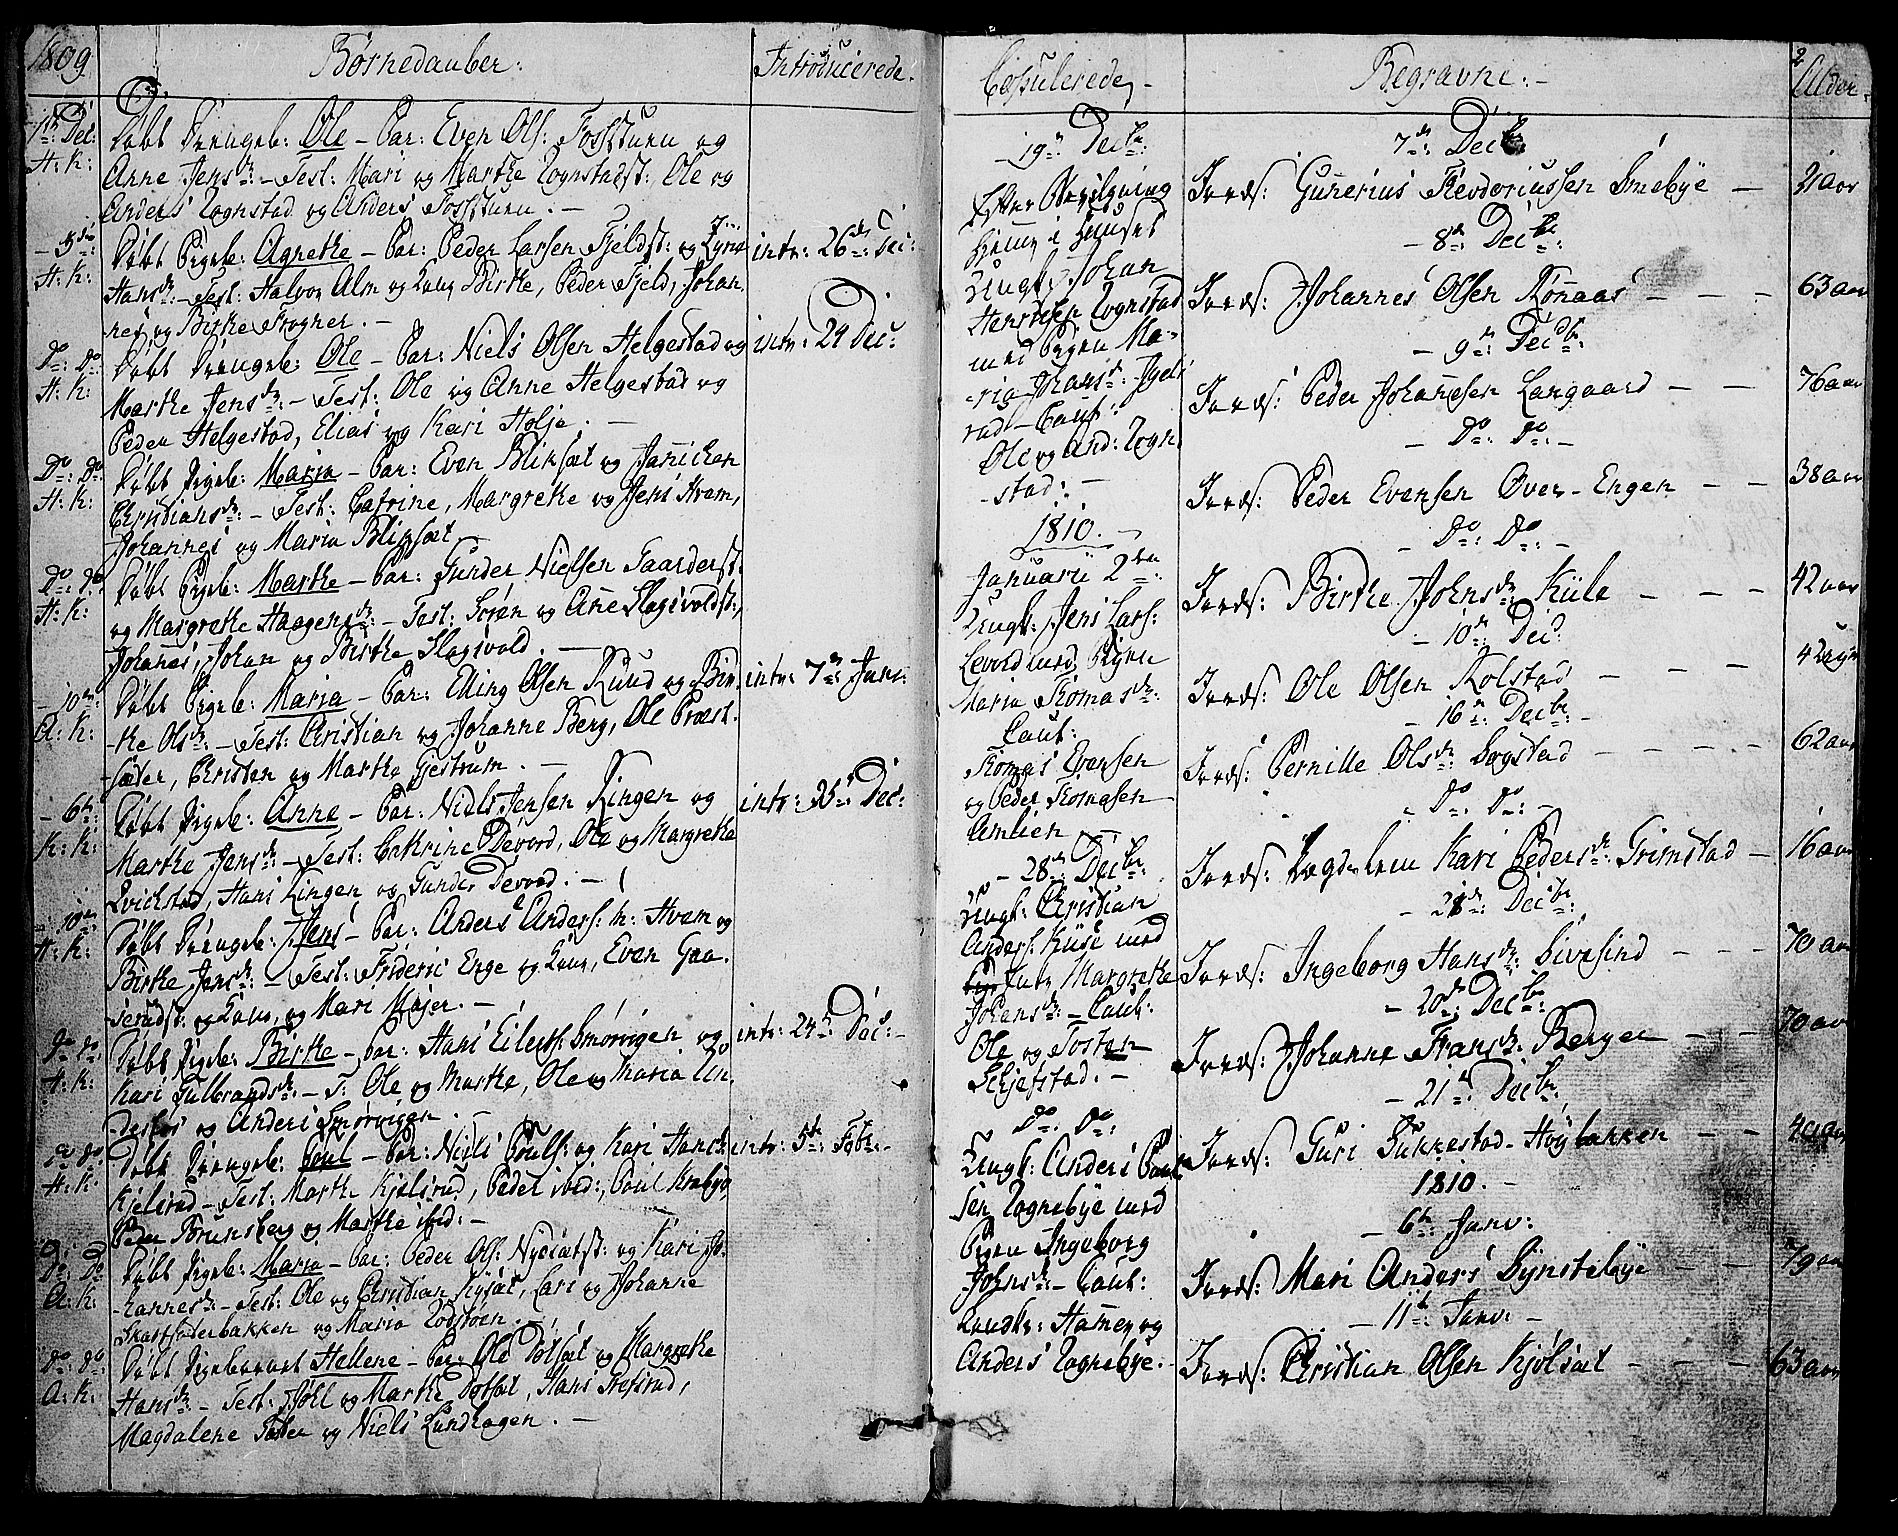 1809
Børnedaaber:
Introducerede.
1ste Dec:
H: K:
Døbt Drengeb: Ole – Par: Even Ols: Fossturu og
Anne Jensdr: – Test: Mari og Marthe Tognstadst:, Ole og
Anders Tognstad og Anders Fossturu. –
– 3die
H: K:
Døbt Pigeb: Agnethe – Par: Peder Larsen Fjeldst: og
Hansdr: – Test: Halvor Alm og Birthe, Peder Fjeld, Johan
nes og Birthe Frogner. –
intr: 26de Dec:
Do: Do
H: K:
Døbt Drengeb: Ole – Par: Niels Olsen Helgestad og
Marthe Jensdr: – Test: Ole og Anne Helgestad og
Peder Helgestad, Elias og Kari Holje. –
intr: 24 Dec:
Do: Do
H: K:
Døbt Pigeb: Maria – Par: Even Blikset og Janichen
Christiansdr: – Test: Catrine, Margrethe og Jens Hvam,
Johannes og Maria Blikset.
Do: Do
H: K:
Døbt Pigeb: Marthe – Par: Gunder Nielsen Gaarderst:
og Margrethe Haagensdr: – Test: Søren og Ane Slagsvoldst:,
Johanes, Johan og Birthe Slagsvold. –
– 10de:
A: K:
Døbt Pigeb: Maria – Par: Elling Olsen Ruud og Bir
the Olsdr: – Test: Christian og Johanne Berg, Ole Præst-
sæter, Christen og Marthe Gjestrum. –
intr: 7de Janr:
– 6te:
K: K:
Døbt Pigeb: Anne – Par: Niels Jensen Lingen og
Marthe Jensdr: – Test: Cathrine Devord, Ole og Margrethe
Qvickstad, Hans Lingen og Gunder Devord. –
intr: 25de Dec:
19de
H: K:
Døbt Drengeb: Jens – Par: Anders Anders: n: Hvam og
Birthe Jensdr: – Test: Frideric Enge og Kone, Even Gaa-
serudst: og Kone, og Mari Majer. –
Do Do:
H: K:
Døbt Pigeb: Birthe – Par: Hans Eilerth: Smørvigen og
Kari Gulbrandsdr: – T: Ole og Marthe, Ole og Maria An-
og Anders Smørvigen.
intr: 24de Dec: –
Do Do
H: K:
Døbt Drengeb: Poul – Par: Niels Pouls: og Kari Hansdr:
Kjelsrud – Test: Marthe Kjelsrud, Peder ibid:, Poul Krabye,
Peder Brunsberg og Marthe ibid: –
intr: 5te Febr: –
Do: Do
A: K:
Døbt Pigeb: Maria – Par: Peder Ols: Nysætst: og Kari Jo-
hannesdr: – Test: Ole og Christian Nysæt, Lari og Johanne
Skartsæterbakken og Maria Lodstøen. –
Do: Do
A: K:
Døbt Pigebarnet Hellene – Par: Ole Dotset og Margrethe
Hansdr: – Test: og Marthe Dotset, Hans
Magdalene og Niels Lundhagen. –
Copulerede, –
– 19de Decbr:
Efter Bevilgning
hjeme i Huset
Ungk: Johan
Hensrisen Tognstad
med Pigen Ma-
ria Johansdr:
rud – Caut:
Ole og And: Togn
stad: –
1810. –
Januarii 2den:
Ungk: Jens Lars:
med Pigen
Maria Thomasdr:
Caut:
Thomas Evensen
og Peder Thomasen
Amlien –
– 28de Decbr:
Ungk: Christian
Anders: Küse med
Margrethe
Johansdr: – Caut:
Ole og Tosten
Schjefstad. –
Do: Do:
Ungk: Anders Poul
sen Tognebye med
Pigen Ingeborg
Johnsdr: – Caut:
Hamer og
Anders Tognebye. –
Begravne: –
2
Alder.
7de: Decbr
Jords: Gunerius Thedoriussen Smebye –
21 aar
– 8de Decbr:
Jords: Johannes Olsen Rønaas – – –
63 aar
– 9de Decbr:
Jords: Peder Johanesen Langaard – –
76 aar
– Do: Do: –
Jords: Peder Evensen Over-Engen – –
38 aar
– Do: Do: –
Jords: Birthe Johnsdr: Küle – – –
42 aar
– 10de: Dec:
Jords: Ole Olsen Kolstad – – –
– 16de: Decbr: –
Jords: Pernille Olsdr: Bogstad – – – –
62 aar
– Do: Do: –
Jords: Lægdslem Kari Pedersdr: Grimstad –
16 aar
– Decbr:
Jords: Ingeborg Hansdr: Sivesind – – –
70 aar
– 20de Decbr:
Jords: Johanne Fransdr: Berger – –
70 aar
– 21de: Decbr:
Jords: Guri Sukkestad-Høybakken – –
1810. –
– 6te Janv:
Jords: Mari Anders Synstebye – –
79 aar
– 11te: Janv: –
Jords: Christian Olsen Kjølsæt – – –
63 aar